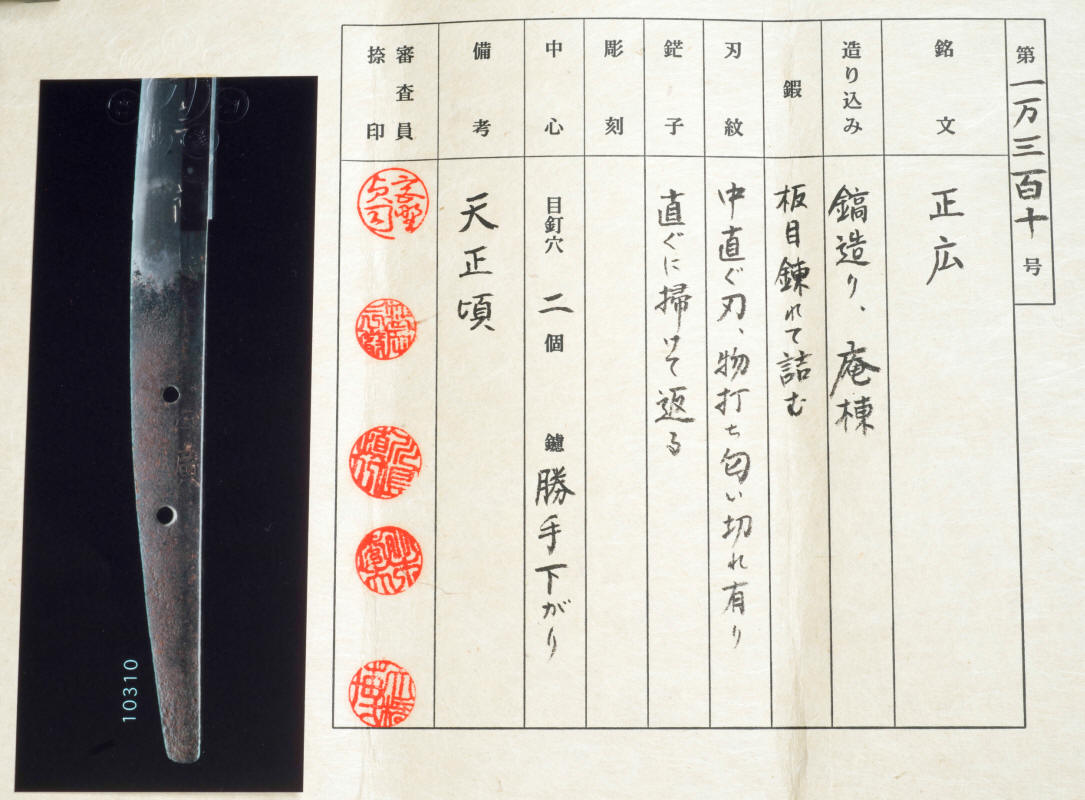 第一万三百十号
銘文
正広
造り込み
鎬造り、庵棟
鍜
板目錬れて詰む
刃紋
中直ぐ刃、物打ち匂い切れ有り
鋩子
直ぐに掃けて返る
彫刻
中心
目釘穴 二個 鑢 勝手下がり
備考
天正頃
審査員
捺印
10310